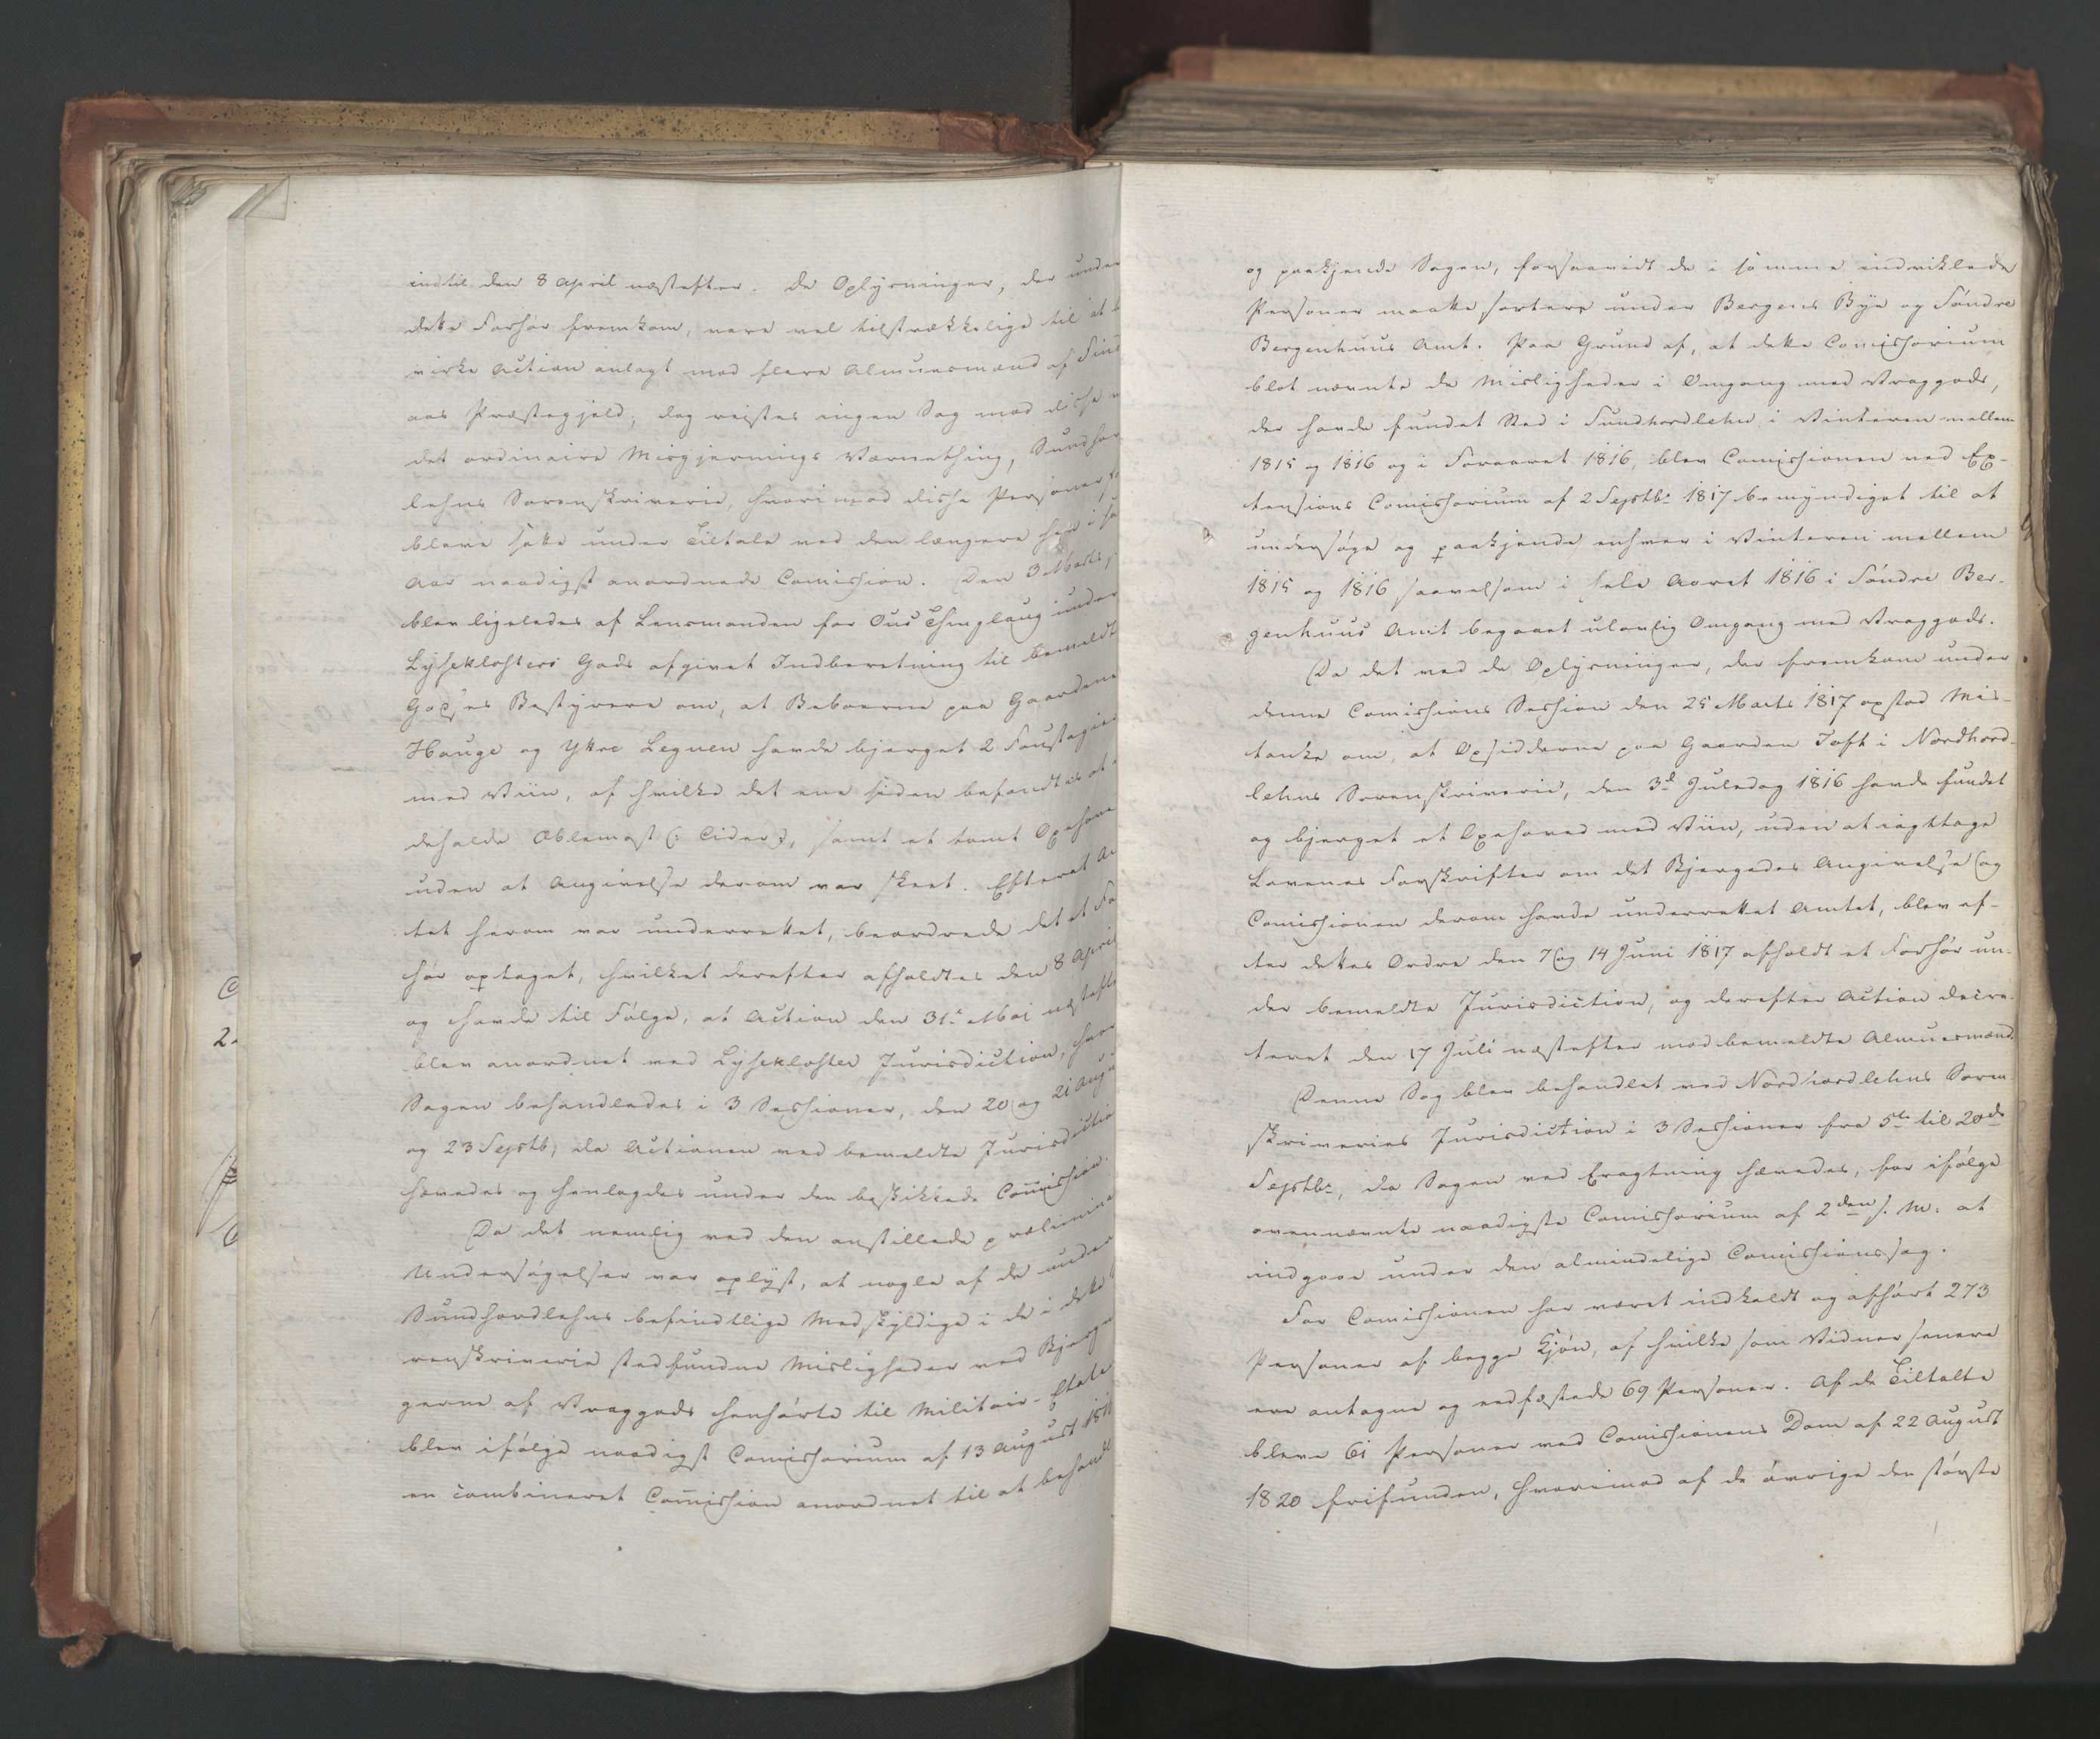 indtil den 8 April næstefter. De Oplysninger, der under
dette Forhør fremkom, vare vel tilstrækkelige til at
virke Action anlagt mod flere Almuesmænd af Find
aas Præstegjeld; dog reistes ingen Sag mod disse
det ordinaire Misgjernings Værnething, Sundhor
lehns Sorenskriverie, hvorimod disse Personer
bleve satte under Tiltale ved den længere hen i
Aar naadigst anordnede Comission. Den 3 Marts,
blev ligeledes af Lensmanden for Ous Thinglaug under
Lysekloster Gods afgivet Indberetning til bemeldte
Godses Bestyrere om, at Beboerne paa Gaardene
Hauge og Ytre Legnen havde bjerget 2 Foustagier
med Viin, af hvilke det ene siden befandtes at
deholde Æblemost (: Cider:), samt et tomt Oxehoved
uden at Angivelse derom var skeet. Efterat Am
tet herom var underrettet, beordrede det et For
hør optaget, hvilket derefter afholdtes den 8 April
og havde til Følge, at Action den 31te Mai næstefter
blev anordnet ved Lysekloster Jurisdiction, hvor
Sagen behandledes i 3 Sessioner, den 20 og 21 Aug
og 23 Septb, da Actionen ved bemeldte Jurisdiction
hævedes og henlagdes under den beskikkede Comission.
Da det nemlig ved den anstillede prælimin
Undersøgelser var oplyst, at nogle af de under
Sundhordlehns befindtlige Medskyldige i de i dette
renskriverie stedfundne Misligheder ved Bjerg
gerne af Vraggods henhørte til Militair-Etaten
blev ifølge naadigst Comissorium af 13 August 1816
en combineret Comission anordnet til at behandle
og paakjende Sagen, forsaavidt de i samme indviklede
Personer maatte sortere under Bergens Bye og Søndre
Bergenhuus Amt. Paa Grund af, at dette Comissorium
blot nævnte de Misligheder i Omgang med Vraggods,
der havde fundet Sted i Sundhordlehn i Vinteren mellem
1815 og 1816 og i Foraaret 1816, blev Comissionen ved Ex-
tensions Comissorium af 2 Septbr 1817 bemyndiget til at
undersøge og paakjende enhver i Vinteren mellem
1815 og 1816 saavelsom i hele Aaret 1816 i Søndre Ber-
genhuus Amt begaaet ulovlig Omgang med Vraggods.
Da det ved de Oplysninger, der fremkom under
denne Comissions Session den 25 Marts 1817 opstod Mis-
tanke om, at Opsidderne paa Gaarden Toft i Nordhord-
lehns Sorenskriverie, den 3die Juledag 1816 havde fundet
og bjerget et Oxehoved med Viin, uden at iagttage
Lovenes Forskrifter om det Bjergedes Angivelse og
Comissionen derom havde underrettet Amtet, blev ef-
ter dettes Ordre den 7 og 14 Juni 1817 afholdt et Forhør un-
der bemeldte Jurisdiction, og derefter Action decre-
teret den 17 Juli næstefter mod bemeldte Almuesmænd.
Denne Sag blev behandlet ved Nordhordlehns Soren
skriveries Jurisdiction i 3 Sessioner fra 5te til 20de
Septbr, da Sagen ved Eragtning hævedes, for ifølge
ovennævnte naadigste Comissorium af 2den s. M. at
indgaae under den almindelige Comissionssag.
For Comissionen har været indkaldt og afhørt 273
Personer af begge Kjøn, af hvilke som Vidner senere
ere antagne og eedfæstede 69 Personer. Af de Tiltalte
bleve 61 Personer ved Comissionens Dom af 22 August
1820 frifunden, hvorimod af de øvrige den største